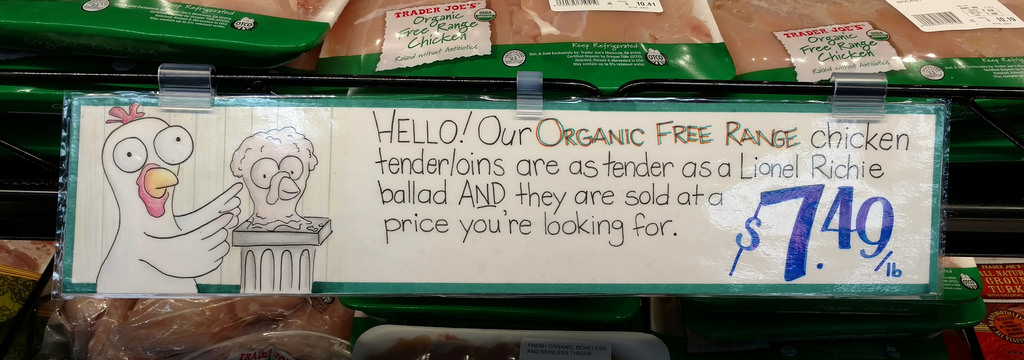 10.41
10.19
TRADER JOE'S
Organic
Free Range
Chicken
Raised without Antibiotics
Keep Refrigerated
TRADER JOE'S
Organic
Free Range
Chicken
Raised without Antibiotics
HELLO! Our ORGANIC FREE RANGE chicken
tenderloins are as tender as a Lionel Richie
ballad AND they are sold at a
price you're looking for.
$7.49/lb
TRADER JOE'S
FRESH ORGANIC BONELESS
AND SKINLESS THIGHS
TRADER JOE'S
ALL NATURAL
GROUND
TURKEY